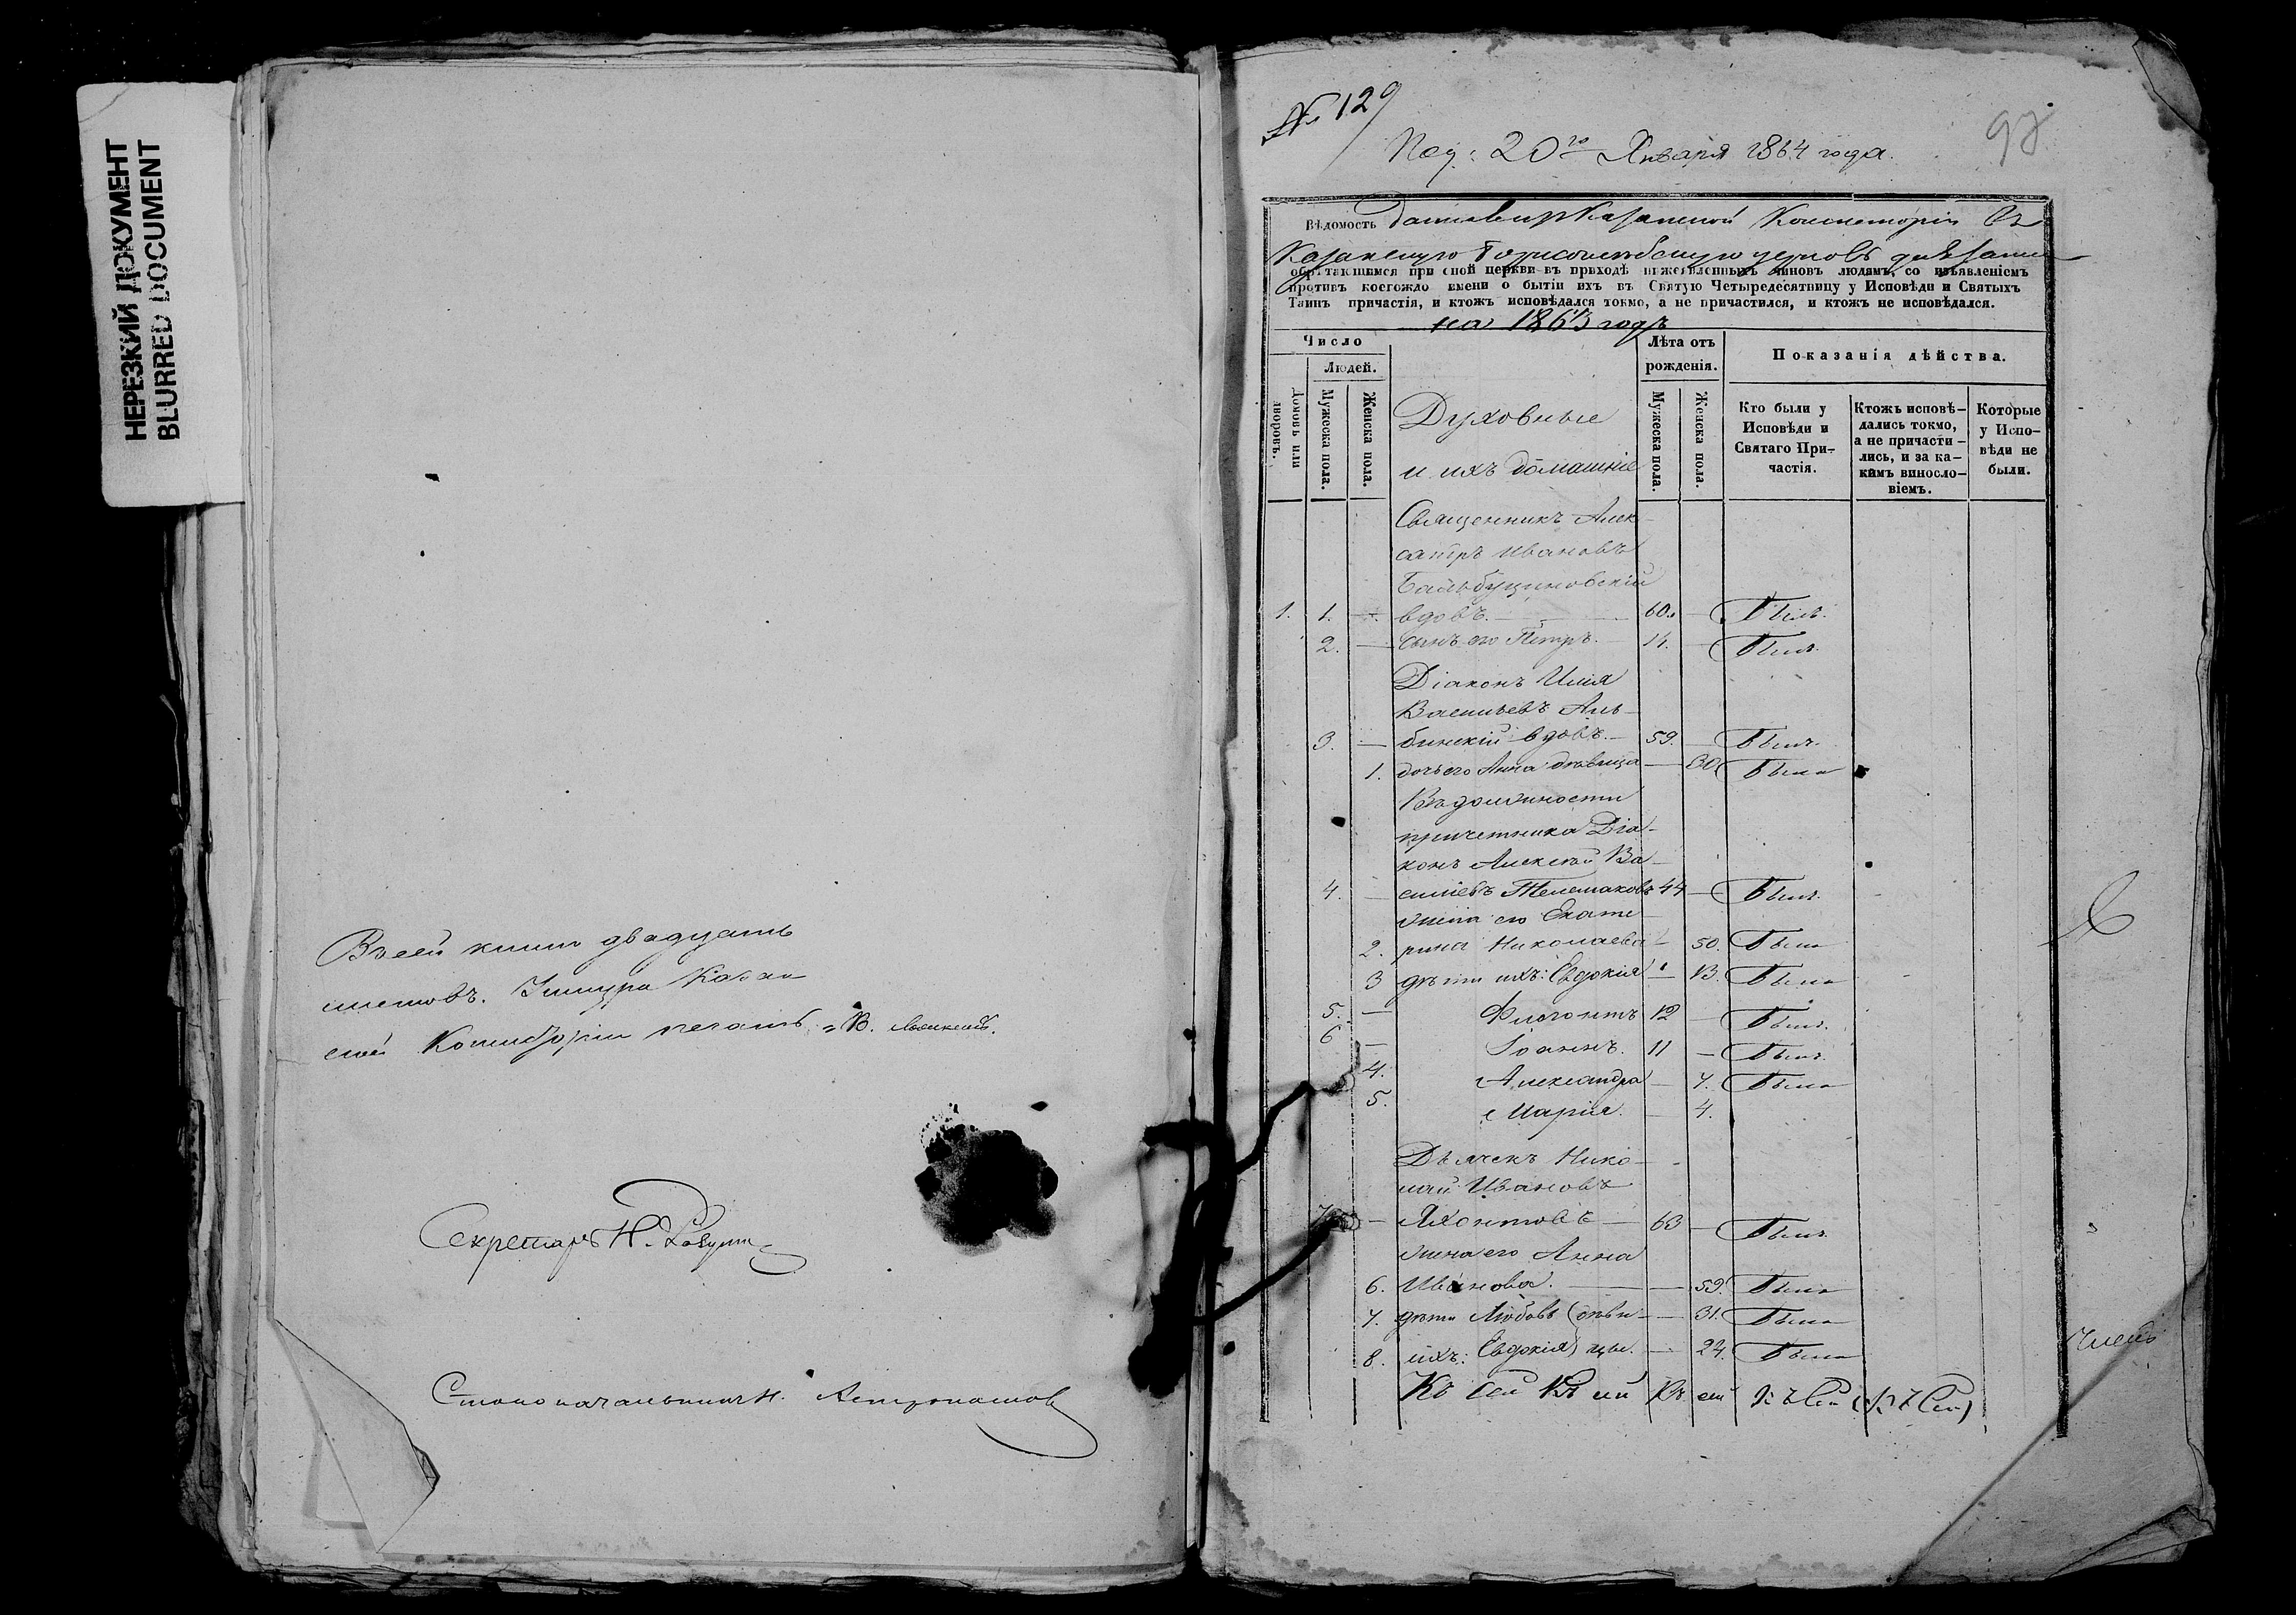 НЕРЕЗКИЙ ДОКУМЕНТ
BLURRED DOCUMENT
Въ сей книгѣ двадцать
листовъ. У шнура Казан
ской Консисторіи печать
Секретарь Н.
Столоначальникъ
№ 129
Под: 20го Января 1864 года.
97
Вѣдомость дана изъ Казанской Консисторіи въ
Казанскую Борисоглѣбскую церковь для записи
обрѣтающимся при оной церкви въ приходѣ нижеявленныхъ чиновъ людямъ, со изъявленіемъ
противъ коегождо имени о бытіи ихъ въ Святую Четыредесятницу у Исповѣди и Святыхъ
Таинъ причастія, и ктожъ исповѣдался токмо, а не причастился, и ктожъ не исповѣдался.
на 1863 годъ
Число
Людей.
Домовъ или дворовъ.
Мужеска пола.
Женска пола.
Духовные
и ихъ домашніе
Лѣта отъ рожденія.
Мужеска пола.
Женска пола.
Показанія дѣйства.
Кто были у Исповѣди и Святаго Причастія.
Ктожъ исповѣдались токмо, а не причастились, и за какимъ винословіемъ.
Которые у Исповѣди не были.
Священникъ Алек-
сандръ Ивановъ
1. 1. — вдовъ. 60. — Былъ.
2. — Сынъ его Петръ. 14. — Былъ.
Діаконъ Илія
Васильевъ Аль-
3. — бинскій вдовъ. 59. — Былъ.
1. дочь его Анна дѣвица — 30. Была
Въ должности
причетника Діа-
конъ Алексѣй Ва-
4. — силіевъ Телемаковъ 44 — Былъ.
жена его Екате-
2. рина Николаева — 50. Была
3 дѣти ихъ: Евдокія — 13. Была
5. — Филогонтъ 12 — Былъ.
6 — Іоаннъ. 11 — Былъ.
4. Александра — 7. Была
5. Марія. — 4.
Дьячекъ Нико-
лай Ивановъ
7. — Яхонтовъ — 63 — Былъ.
жена его Анна
6. Иванова. — 59. Была
7. дѣти Любовь (дѣви- — 31. Была
8. ихъ: Евдокія) цы. — 24. Была
Къ сей Къ сей Къ сей Къ сей (Къ Сей)